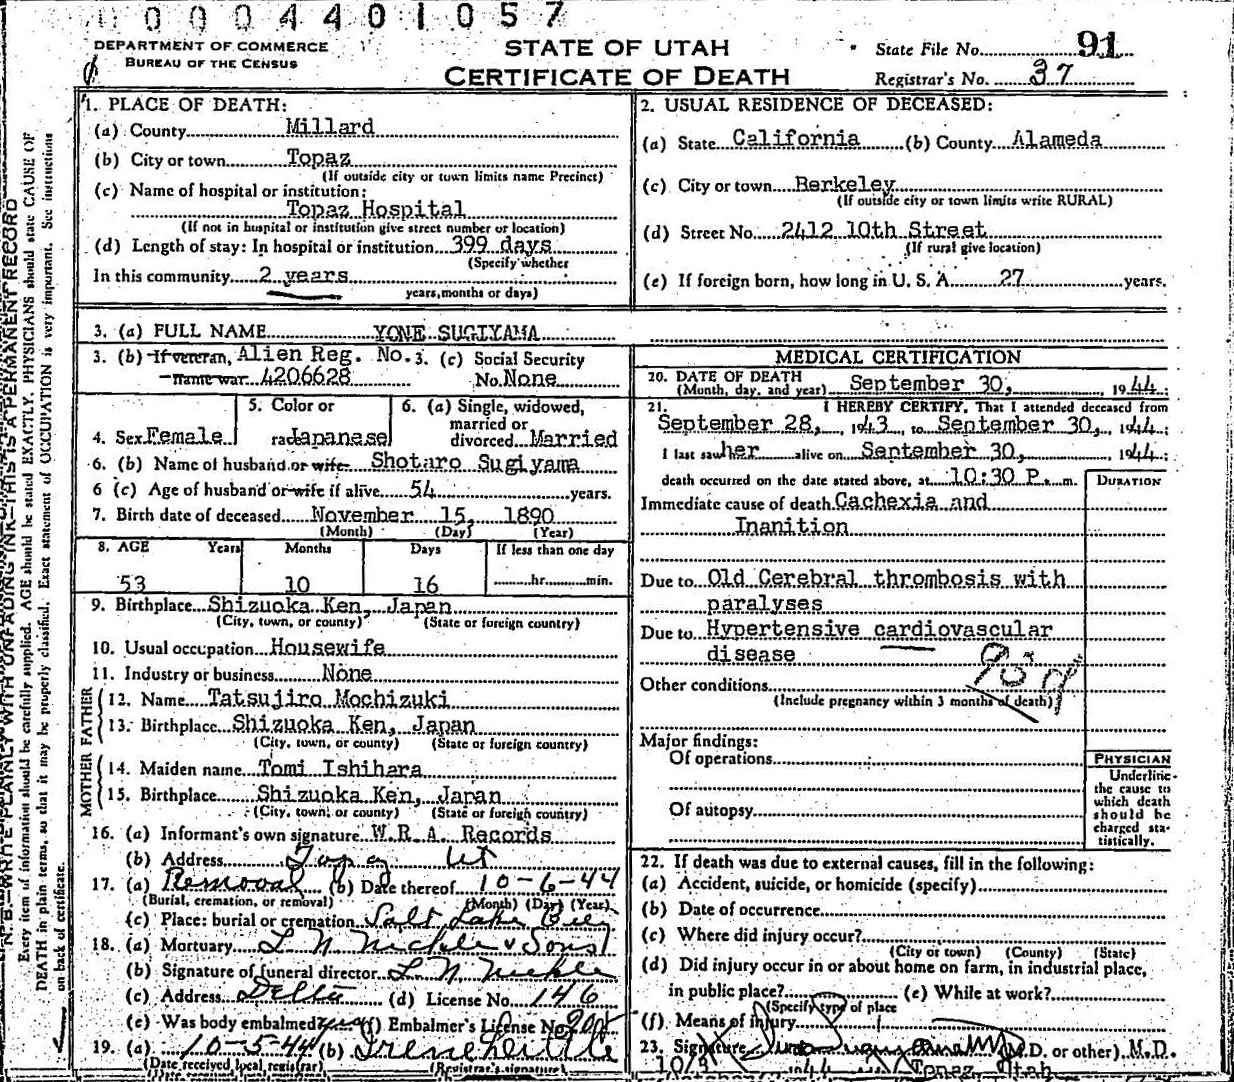 0004401057
DEPARTMENT OF COMMERCE
BUREAU OF THE CENSUS
STATE OF UTAH
CERTIFICATE OF DEATH
State File No. 91
Registrar's No. 37
1. PLACE OF DEATH:
(a) County Millard
(b) City or town Topaz
(If outside city or town limits name Precinct)
(c) Name of hospital or institution:
Topaz Hospital
(If not in hospital or institution give street number or location)
(d) Length of stay: In hospital or institution 399 days
(Specify whether
In this community 2 years
years, months or days)
2. USUAL RESIDENCE OF DECEASED:
(a) State California (b) County Alameda
(c) City or town Berkeley
(If outside city or town limits write RURAL)
(d) Street No. 2412 10th Street
(If rural give location)
(e) If foreign born, how long in U. S. A. 27 years.
3. (a) FULL NAME YONE SUGIYAMA
3. (b) If veteran, Alien Reg. No. 3. (c) Social Security
name war 4206628 No. None
4. Sex Female
5. Color or
race Japanese
6. (a) Single, widowed,
married or
divorced Married
6. (b) Name of husband or wife Shotaro Sugiyama
6 (c) Age of husband or wife if alive 54 years.
7. Birth date of deceased November 15, 1890
(Month) (Day) (Year)
8. AGE Years Months Days If less than one day
53 10 16 hr. min.
9. Birthplace Shizuoka Ken, Japan
(City, town, or county) (State or foreign country)
10. Usual occupation Housewife
11. Industry or business None
FATHER
12. Name Tatsujiro Mochizuki
13. Birthplace Shizuoka Ken, Japan
(City, town, or county) (State or foreign country)
MOTHER
14. Maiden name Tomi Ishihara
15. Birthplace Shizuoka Ken, Japan
(City, town, or county) (State or foreign country)
16. (a) Informant's own signature W.R.A. Records
(b) Address Topaz Ut
17. (a) Removal (b) Date thereof 10-6-44
(Burial, cremation, or removal) (Month) (Day) (Year)
(c) Place: burial or cremation Salt Lake
18. (a) Mortuary L N Nickle & Sons
(b) Signature of funeral director L N Nickle
(c) Address Delta (d) License No. 146
(e) Was body embalmed? yes (f) Embalmer's License No.
19. (a) 10-5-44 (b) Irene
(Date received local registrar) (Registrar's signature)
MEDICAL CERTIFICATION
20. DATE OF DEATH
(Month, day, and year) September 30, 1944
21. I HEREBY CERTIFY, That I attended deceased from
September 28, 1943 to September 30, 1944
I last saw her alive on September 30, 1944
death occurred on the date stated above, at 10:30 P. m.
DURATION
Immediate cause of death Cachexia and
Inanition
Due to Old Cerebral thrombosis with
paralyses
Due to Hypertensive cardiovascular
disease
Other conditions
(Include pregnancy within 3 months of death)
Major findings:
Of operations
Of autopsy
PHYSICIAN
Underline
the cause to
which death
should be
charged sta-
tistically.
22. If death was due to external causes, fill in the following:
(a) Accident, suicide, or homicide (specify)
(b) Date of occurrence
(c) Where did injury occur?
(City or town) (County) (State)
(d) Did injury occur in or about home on farm, in industrial place,
in public place? (e) While at work?
(Specify type of place
(f) Means of injury
23. Signature (M.D. or other) M.D.
Topaz, Utah
N.B.—WRITE PLAINLY WITH UNFADING INK—THIS IS A PERMANENT RECORD
Every item of information should be carefully supplied. AGE should be stated EXACTLY. PHYSICIANS should state CAUSE OF
DEATH in plain terms, so that it may be properly classified. Exact statement of OCCUPATION is very important. See instructions
on back of certificate.